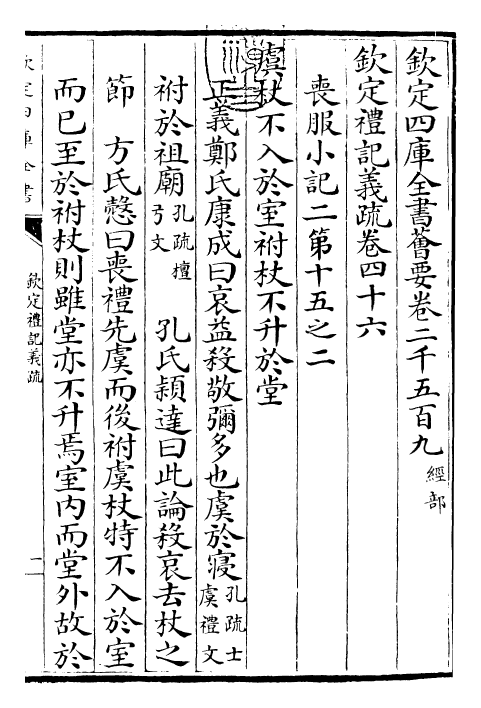 欽定四庫全書薈要卷二千五百九 經部
欽定禮記義疏卷四十六
喪服小記二第十五之二
虞杖不入於室祔杖不升於堂
正義鄭氏康成曰哀益殺敬彌多也虞於寢孔疏士虞禮文
祔於祖廟孔疏檀弓文 孔氏穎達曰此論殺哀去杖之
節 方氏慤曰喪禮先虞而後祔虞杖特不入於室
而已至於祔杖則雖堂亦不升焉室內而堂外故於
欽定四庫全書
欽定禮記義疏